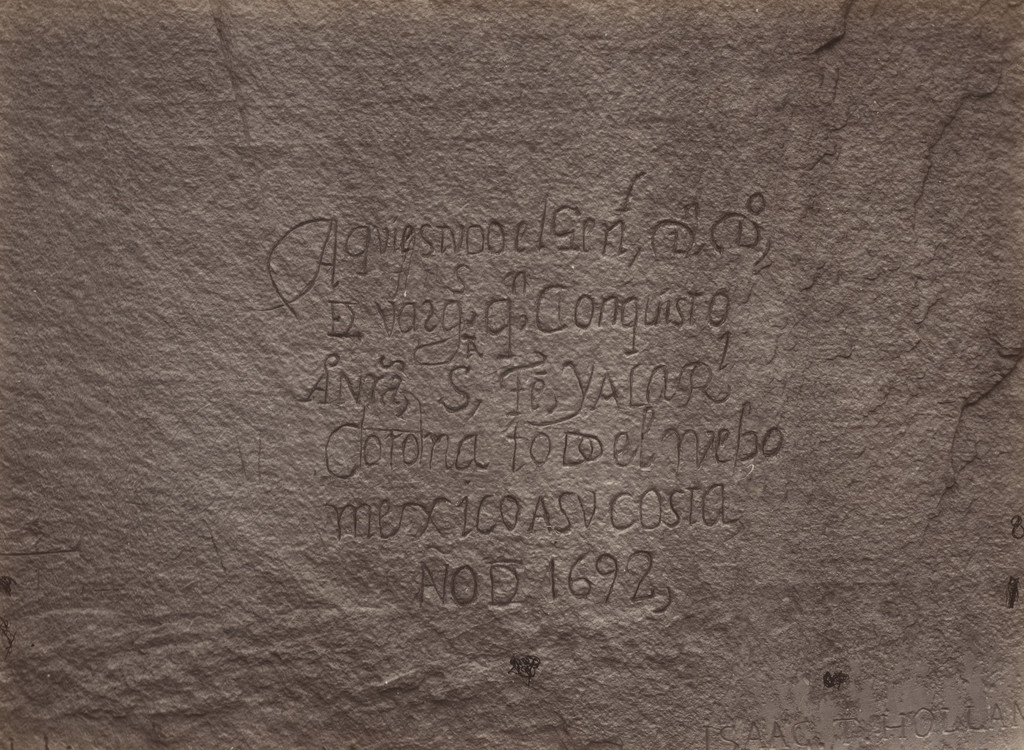 Aqui estuvo el Genl, Dn, Do,
De vargs, qn, Conquisto
A Nra, Sa, Fe, Y A la Rl
Corona todo el nuebo
mexico A SU costa
AÑO D 1692,
ISAAC T. HOLLAN